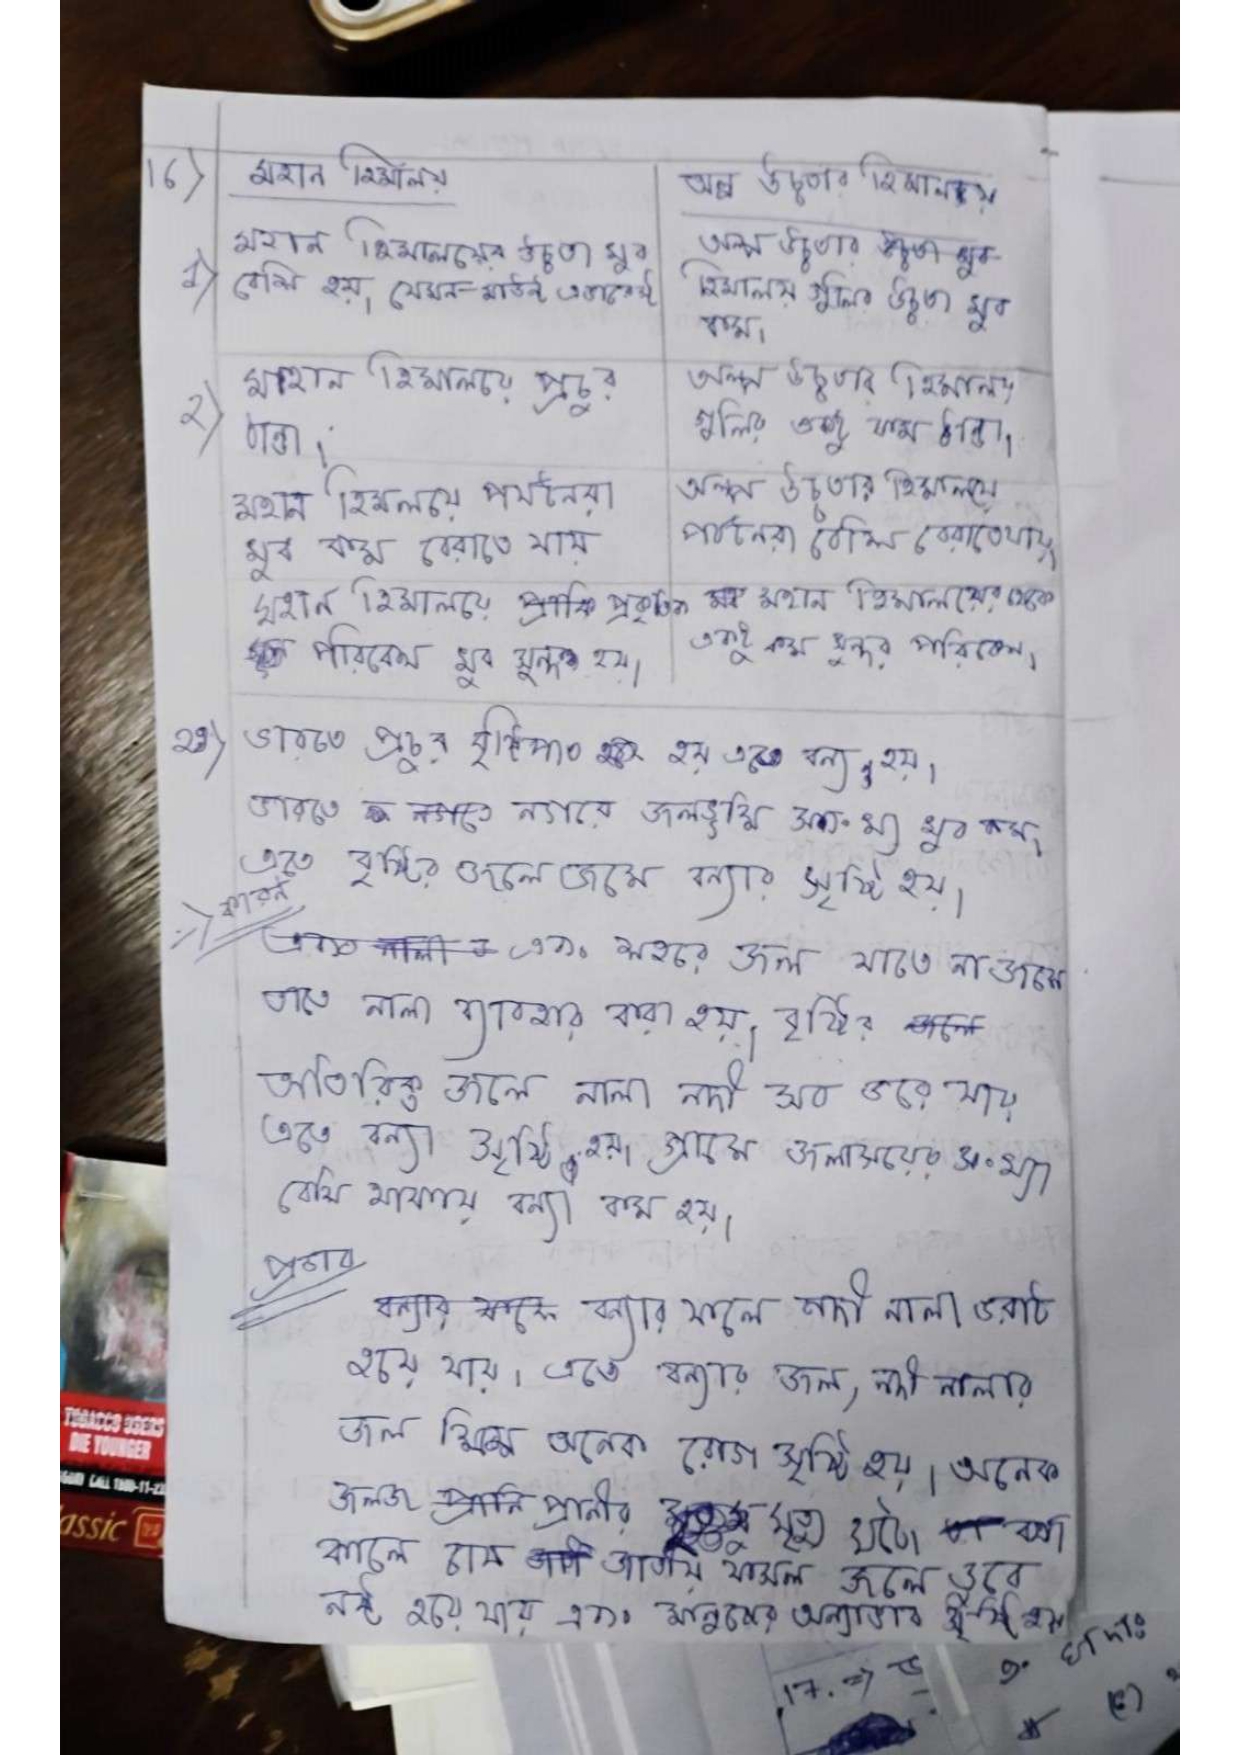 16) মহান হিমালয় অল্প উচ্চতার হিমালয়
1) মহান হিমালয়ের উচ্চতা খুব
বেশি হয়, যেমন মাউন্ট এভারেস্ট
অল্প উচ্চতার উচ্চতা খুব
হিমালয় গুলির উচ্চতা খুব
কম।
২) মাহান হিমালয়ে প্রচুর
ঠান্ডা।
অল্প উচ্চতার হিমালয়
গুলির একটু কম ঠান্ডা।
মহান হিমালয়ে পর্যটনেরা
খুব কম বেরাতে যায়
অল্প উচ্চতার হিমালয়ে
পর্যটনেরা বেশি বেরাতে যায়,
মহান হিমালয়ে প্রকৃতিক
পরিবেশ খুব সুন্দর হয়।
মহান হিমালয়ের থেকে
একটু কম সুন্দর পরিবেশ।
ভারতে প্রচুর বৃষ্টিপাত হয় এতে বন্যা হয়।
ভারতে নগরে জলভূমি সংখ্যা খুব কম,
এতে বৃষ্টির জলে জমে বন্যার সৃষ্টি হয়।
কারন
এবং শহরে জল যাতে না জমে
তাতে নালা ব্যাবহার করা হয়, বৃষ্টির জলে
অতিরিক্ত জলে নালা নদী সব ভরে যায়
এতে বন্যা সৃষ্টি হয়। গ্রামে জলাসয়ের সংখ্যা
বেশি থাকায় বন্যা কম হয়।
প্রভাব
বন্যার ফলে বন্যার ফলে নদী নালা ভরাট
হয়ে যায়। এতে বন্যার জল, নদী নালার
জল মিশে অনেক রোগ সৃষ্টি হয়। অনেক
জলজ প্রানি প্রানীর মৃত্যু ঘটে। বন্যা
কালে চাষ জাতীয় ফসল জলে ডুবে
নষ্ট হয়ে যায় এবং মানুষের অন্যাভাব সৃষ্টি হয়
TOBACCO USERS
DIE YOUNGER
CALL 1800-11-2
assic
17. ⇒